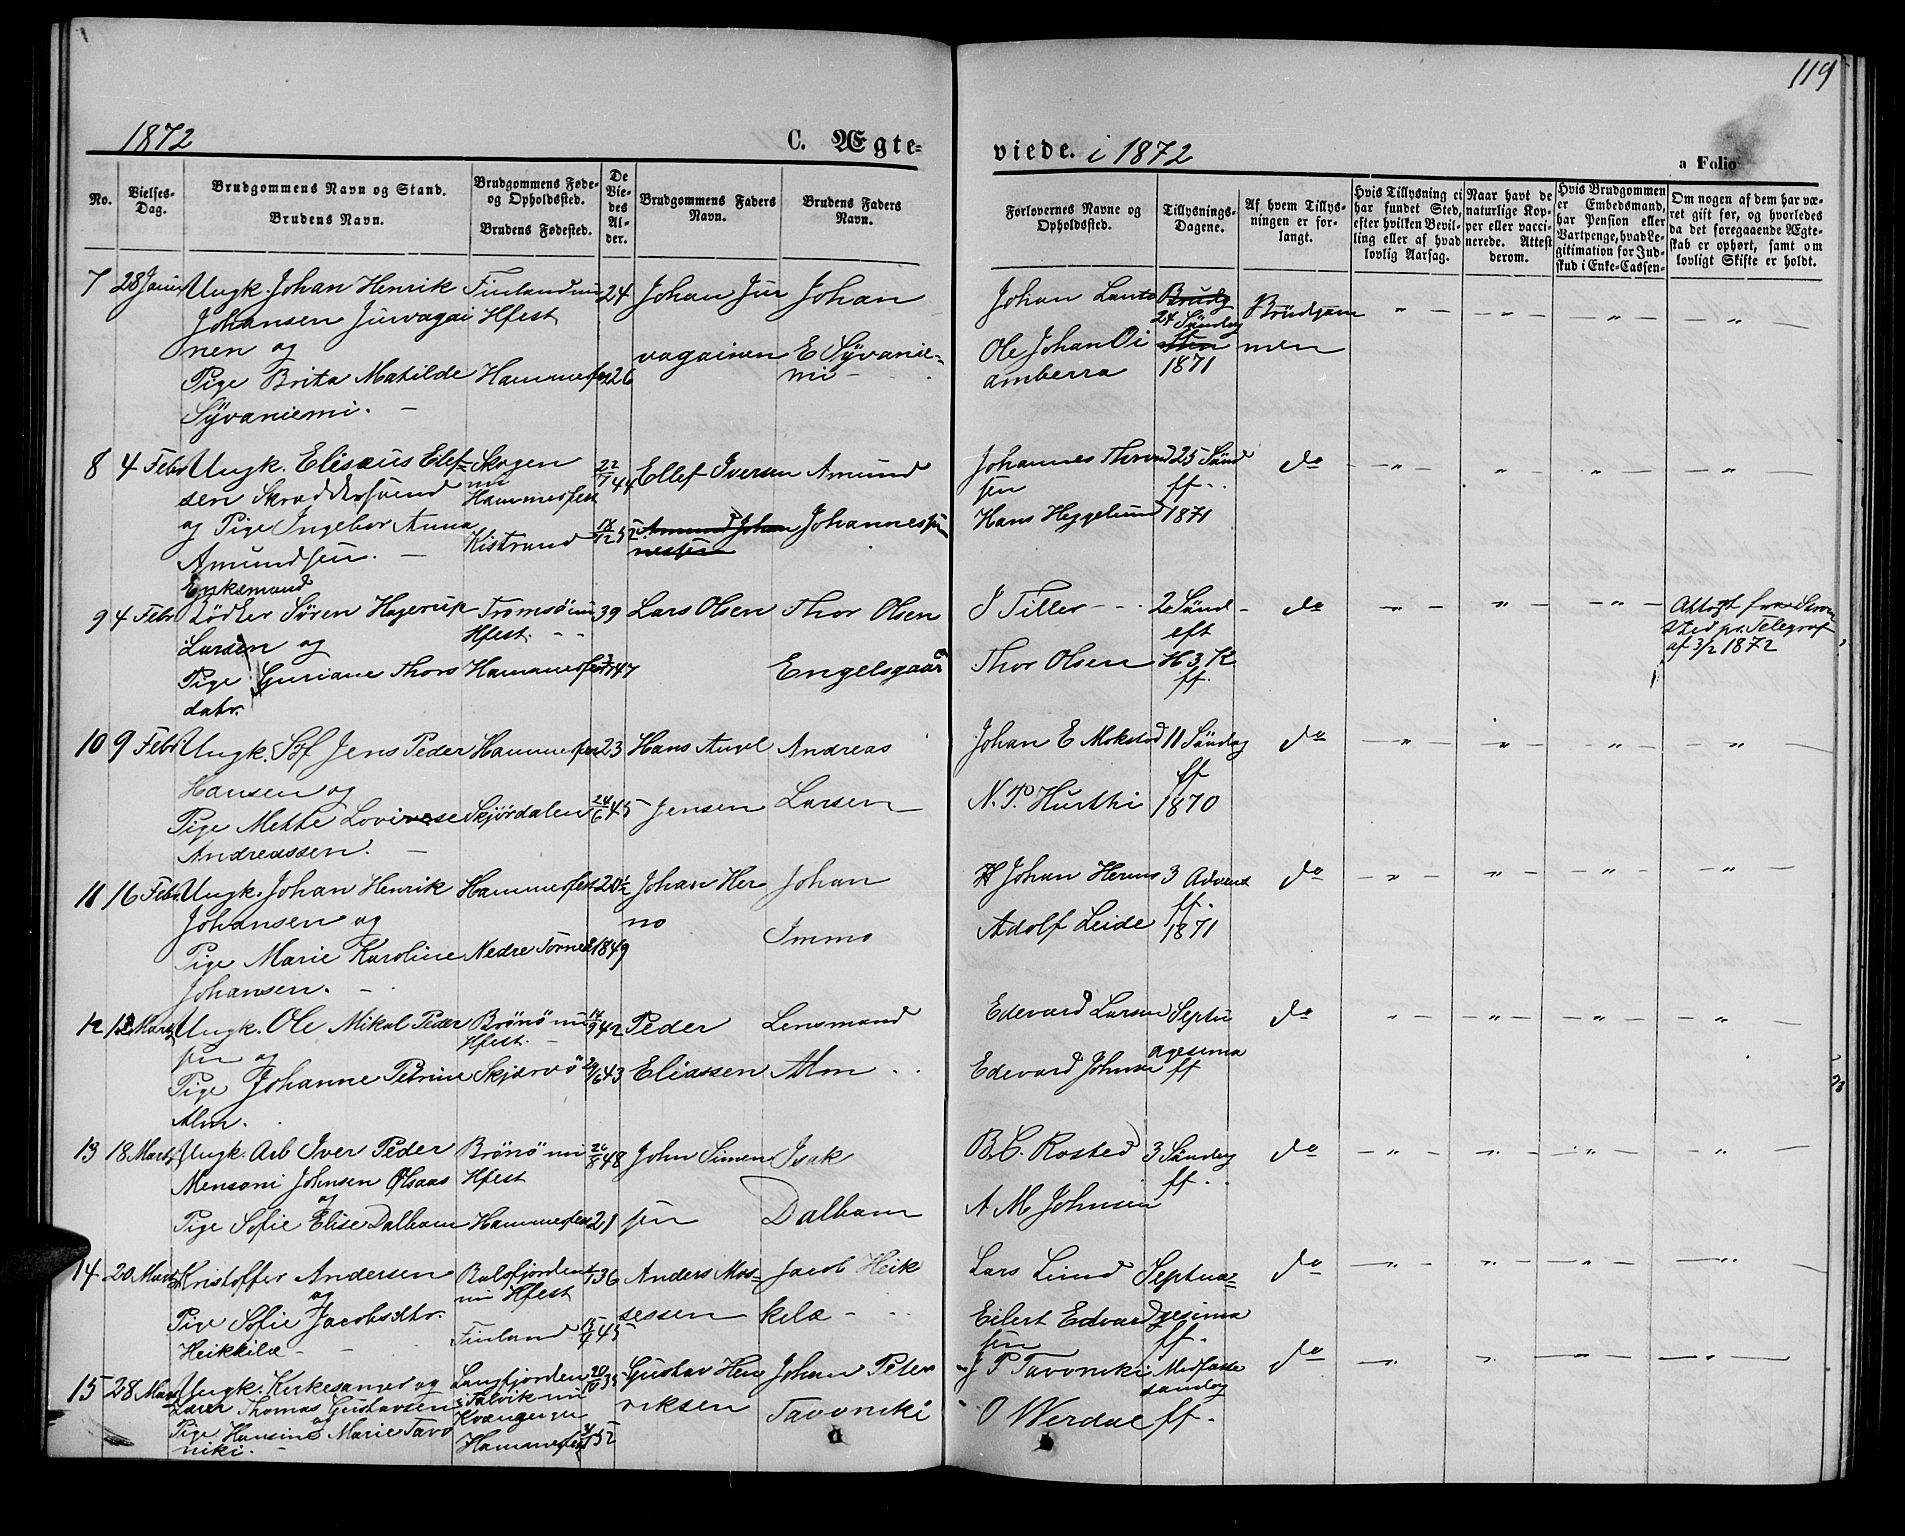 119
1872
C. Ægte-
viede. i 1872
a Folio
No.
Vielses-
Dag.
Brudgommens Navn og Stand.
Brudens Navn.
Brudgommens Føde-
og Opholdssted.
Brudens Fødested.
De
Vie-
des
Al-
der.
Brudgommens Faders
Navn.
Brudens Faders
Navn.
Forlovernes Navne og
Opholdssted.
Tillysnings-
Dagene.
Af hvem Tillys-
ningen er for-
langt.
Hvis Tillysning ei
har fundet Sted,
efter hvilken Bevil-
ling eller af hvad
lovlig Aarsag.
Naar havt de
naturlige Kop-
per eller vacci-
nerede. Attest
derom.
Hvis Brudgommen
er Embedsmand,
har Pension eller
Vartpenge, hvad Le-
gitimation for Ind-
skud i Enke-Cassen-
Om nogen af dem har væ-
ret gift før, og hvorledes
da det foregaaende Ægte-
skab er ophørt, samt om
lovligt Skifte er holdt.
7 28 Ungk. Johan Henrik
Johansen Jurvagai
nen og
Pige Brita Matilde
Syvaniemi.
Finland nu
Hfest
Hammerfest
24
26
Johan Jur
vagainen
Johan
E Syvanie-
mi
Johan Lanto
Ole Johan Oi
amberra
24 Søndag
1871
Brudgom
men
8 4 Febr Ungk. Elisæus Elef-
sen Skræddersvend
og Pige Ingebor Anna
Amundsen.
Skogen
nu
Hammerfest
Kistrand
22/7 44
18/12 52
Ellef Iversen
Amund Johan
nessen
Amund
Johannessen
Johannes Thrond
sen
Hans Heggelund
25 Sønd
ff
1871
do
9 4 Febr
Enkemand
Lødser Søren Hagerup
Larsen og
Pige Guriane Thors
datr.
Tromsø nu
Hfest.
Hammerfest
39
47
Lars Olsen
Thor Olsen
Engelsgaard
Tiller
Thor Olsen
2 Sønd
eft
H 3 K
ff.
do
Attest fra
sted pr. Telegraf
af 3/2 1872
10 9 Febr Ungk. Jens Peder
Hansen og
Pige Mette Lovise
Andreassen.
Hammerfest
Skjørdalen
23
24/6 45
Hans Axel
Jensen
Andreas
Larsen
Johan E Mokstad
N. P. Hurthi
11 Søndag
ff
1870
do
11 16 Febr Ungk. Johan Henrik
Johansen og
Pige Marie Karoline
Johansen.
Hammerfest
Nedre Torneå
20½
1849
Johan Her
no
Johan
Immo
Johan Herno
Adolf Leide
3 Advent
ff.
1871
do
12 Marts Ungk. Ole Mikal Peder
sen og
Pige Johanne Petrine
Alm.
Brønø nu
Hfest.
Skjærvø
14/9 42
43
Peder
Eliassen
Lensmand
Alm
Edevard Larsen
Edevard Johnsen
Septu
agesima
ff
do
13 18 Marts Ungk. Arb Iver Peder
Mensoni Johnsen Olsaas
og
Pige Sofie Elise Dalham
Brønø nu
Hfest
Hammerfest
26/8 48
21
John Simen
sen
Isak
Dalham
B. C. Rosted
A M Johnsen
3 Søndag
ff
do
14 20 Marts Kristoffer Andersen
og
Pige Sofie Jacobsdtr.
Heikkilæ
Balsfjorden
nu Hfest
Finland
36
15/4 45
Anders Mos-
sessen
Jacob Heik
kelæ
Lars Lund
Eilert Edvard
sen
Septua-
gesima
ff.
do
15 28 Marts Ungk. Kirkesanger og
Lærer Thomas Gustavsen
og
Pige Hansine Marie Tavo
niki.
Langfjorden
i Talvik nu
Kvænangen
Hammerfest
20/10 35
52
Gustav Hen
riksen
Johan Peter
Tavoniki
J P Tavoniki
O Werdal
Midfaste
søndag
ff.
do